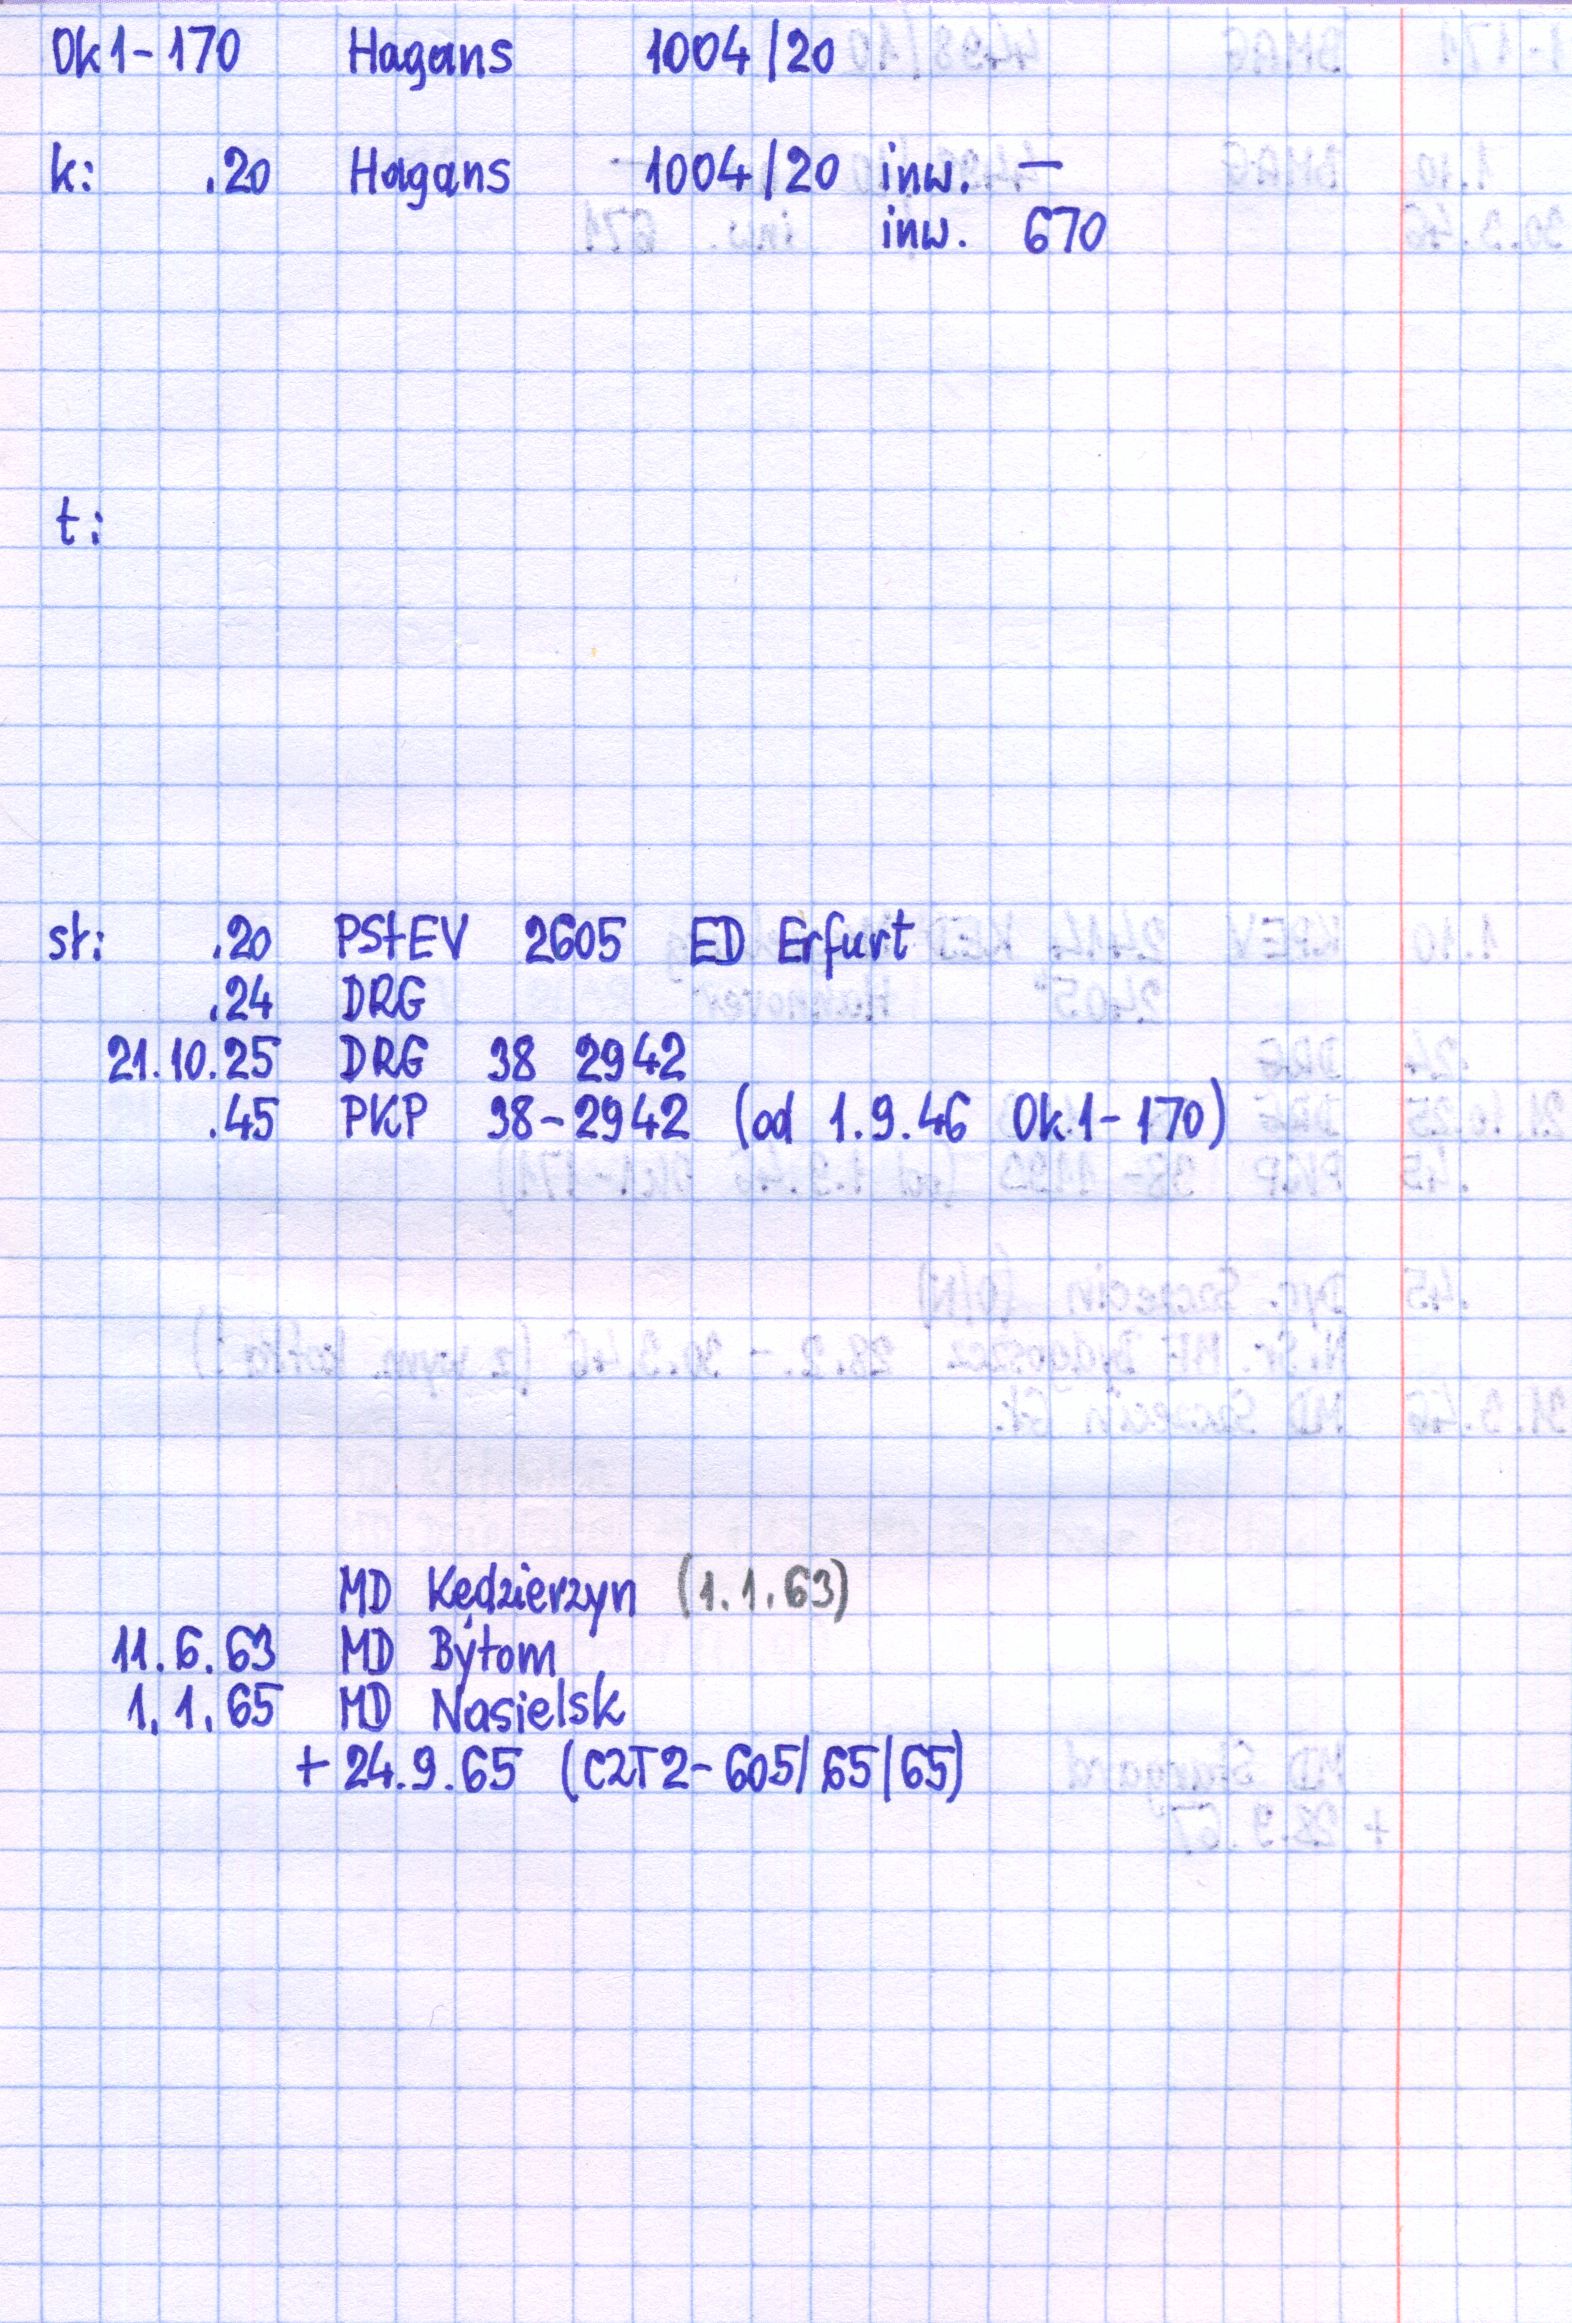 Ok1-170 Hagans 1004/20
k: .20 Hagans 1004/20 inw. —
inw. 670
t:
st: .20 PStEV 2605 ED Erfurt
.24 DRG
21.10.25 DRG 38 2942
.45 PKP 38-2942 (od 1.9.46 Ok1-170)
MD Kędzierzyn (1.1.63)
11.6.63 MD Bytom
1.1.65 MD Nasielsk
+ 24.9.65 (CZT2-605/65/65)